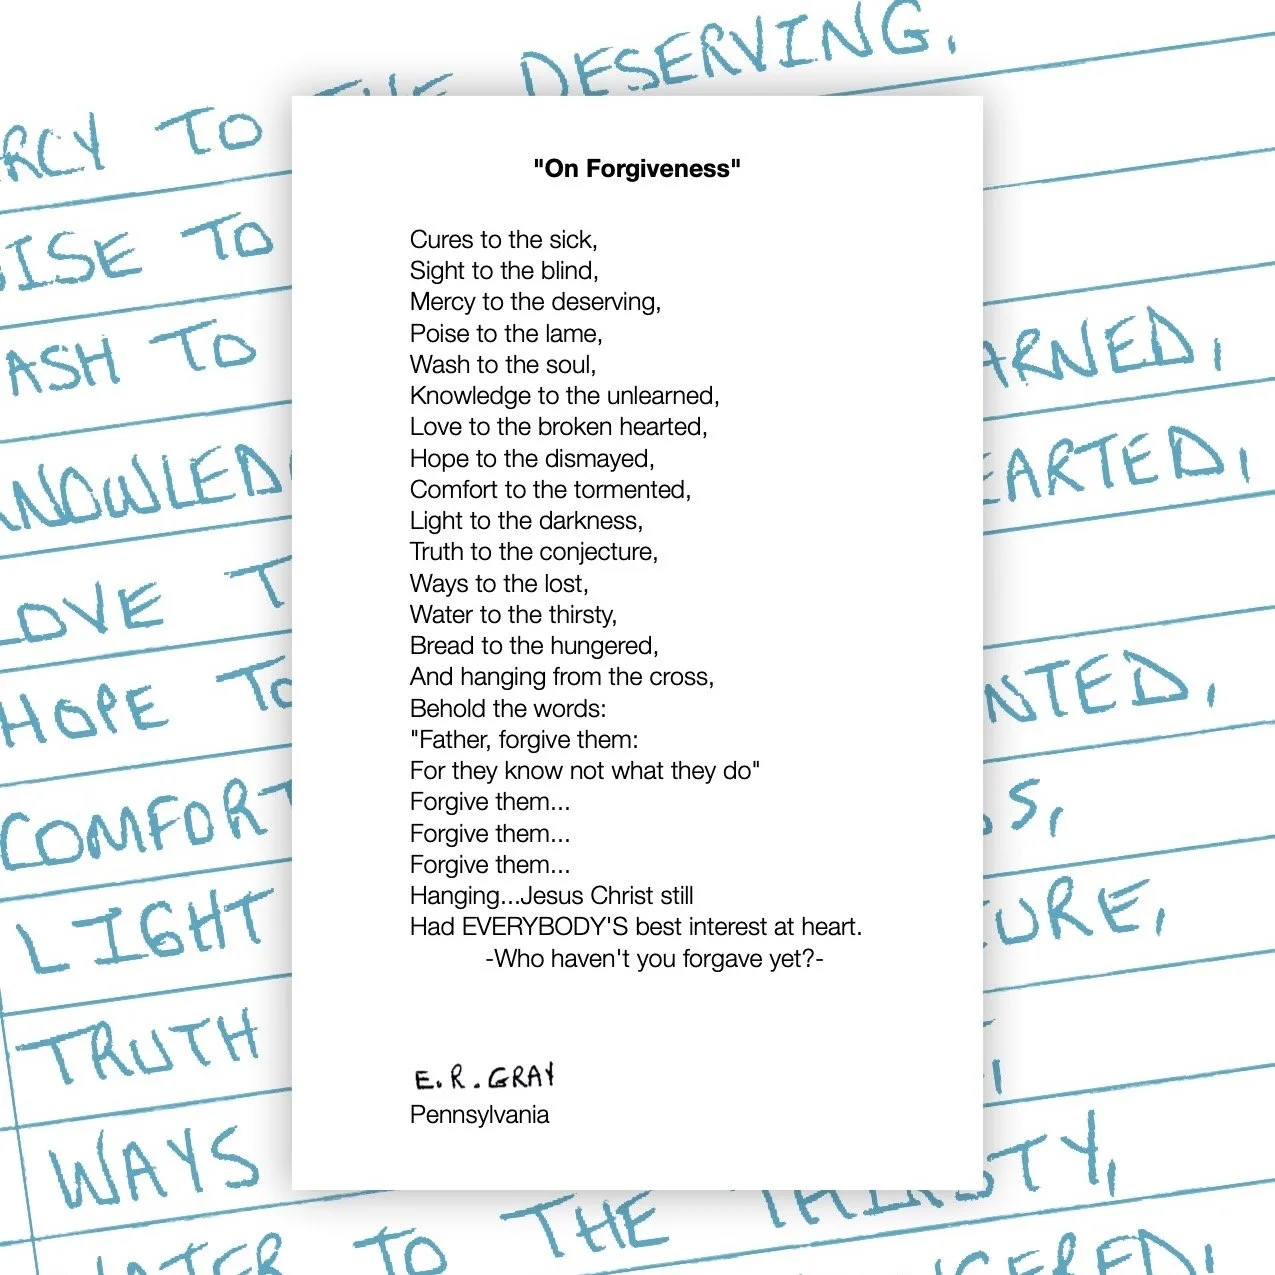 DESERVING,
TO
TO
ASH TO
ARNED,
KNOWLED
EARTED,
LOVE T
HOPE TO
NTED,
COMFORT
S,
LIGHT
URE,
TRUTH
WAYS
STY,
TO THE THIRSTY,
"On Forgiveness"
Cures to the sick,
Sight to the blind,
Mercy to the deserving,
Poise to the lame,
Wash to the soul,
Knowledge to the unlearned,
Love to the broken hearted,
Hope to the dismayed,
Comfort to the tormented,
Light to the darkness,
Truth to the conjecture,
Ways to the lost,
Water to the thirsty,
Bread to the hungered,
And hanging from the cross,
Behold the words:
"Father, forgive them:
For they know not what they do"
Forgive them...
Forgive them...
Forgive them...
Hanging...Jesus Christ still
Had EVERYBODY'S best interest at heart.
-Who haven't you forgave yet?-
E.R.GRAY
Pennsylvania